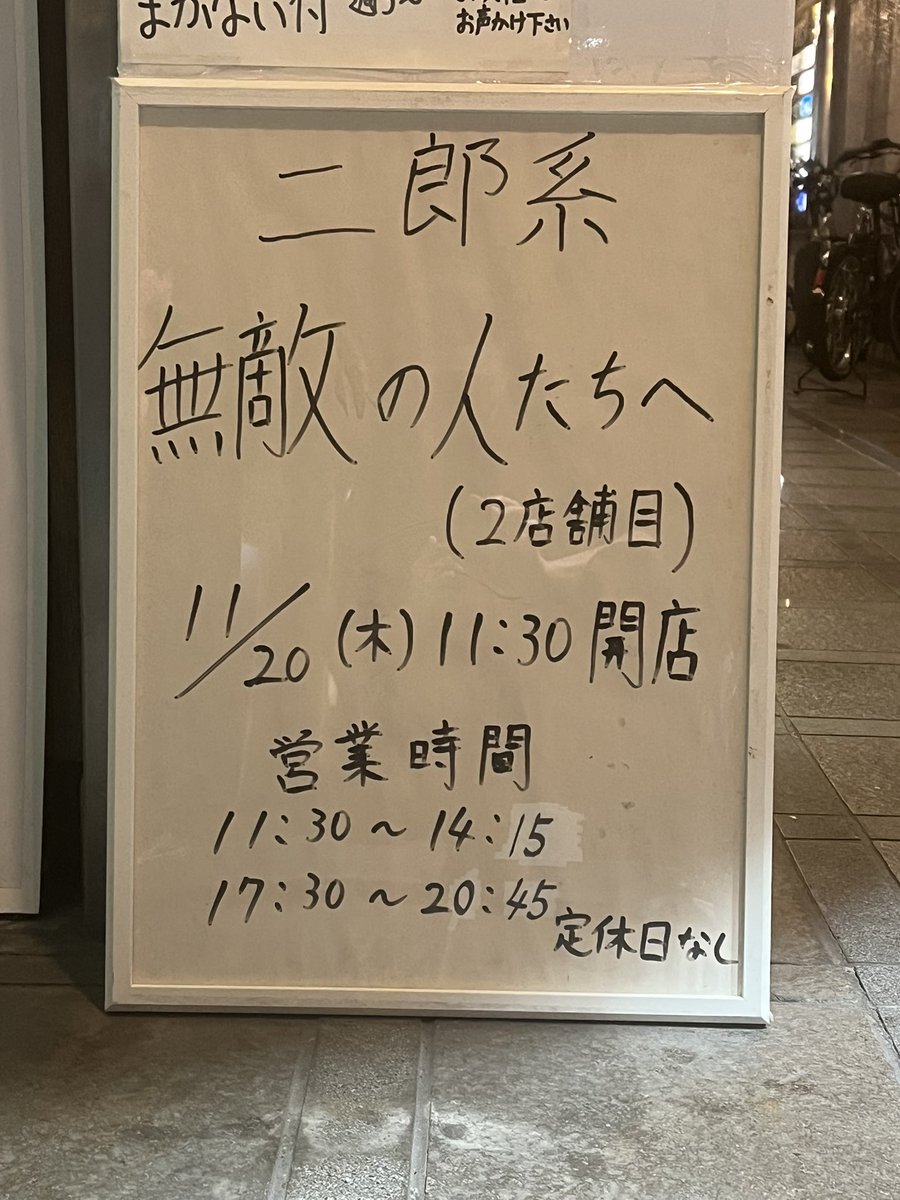 まかない付
お声かけ下さい
二郎系
無敵の人たちへ
(2店舗目)
11/20 (木) 11:30 開店
営業時間
11:30 ~ 14:15
17:30 ~ 20:45
定休日なし